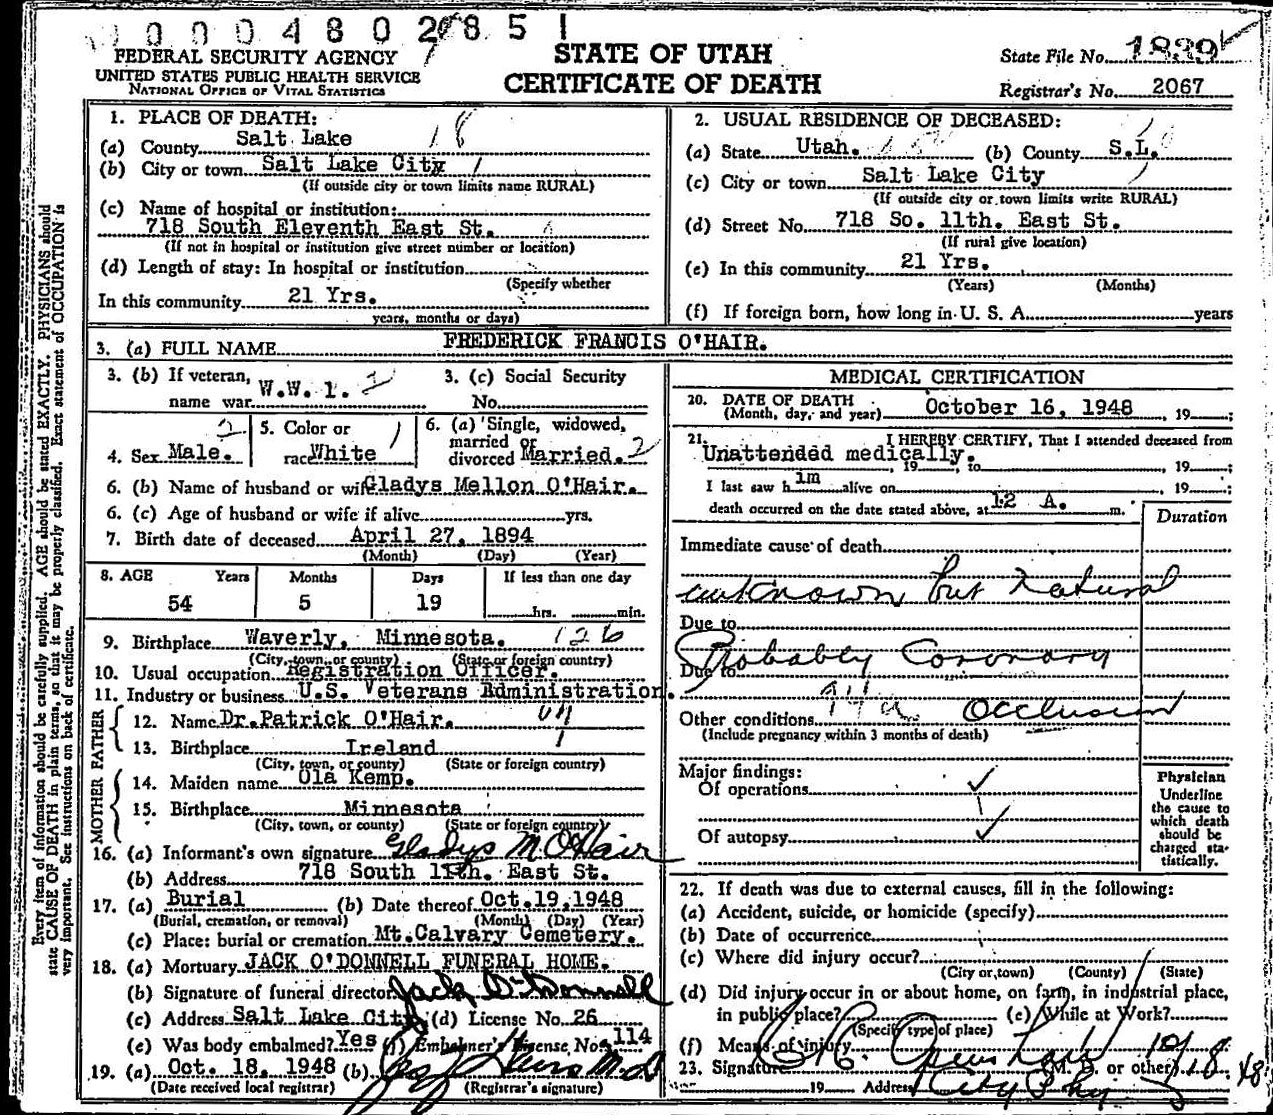 0004802851
FEDERAL SECURITY AGENCY
UNITED STATES PUBLIC HEALTH SERVICE
NATIONAL OFFICE OF VITAL STATISTICS
STATE OF UTAH
CERTIFICATE OF DEATH
State File No. 1839
Registrar's No. 2067
Every item of information should be carefully supplied. AGE should be stated EXACTLY. PHYSICIANS should
state CAUSE OF DEATH in plain terms, so that it may be properly classified. Exact statement of OCCUPATION is
very important. See instructions on back of certificate.
1. PLACE OF DEATH:
(a) County Salt Lake 18
(b) City or town Salt Lake City 1
(If outside city or town limits name RURAL)
(c) Name of hospital or institution:
718 South Eleventh East St.
(If not in hospital or institution give street number or location)
(d) Length of stay: In hospital or institution
(Specify whether
In this community 21 Yrs.
years, months or days)
2. USUAL RESIDENCE OF DECEASED:
(a) State Utah. (b) County S.L.
(c) City or town Salt Lake City
(If outside city or town limits write RURAL)
(d) Street No. 718 So. 11th. East St.
(If rural give location)
(e) In this community 21 Yrs.
(Years) (Months)
(f) If foreign born, how long in U. S. A. years
3. (a) FULL NAME FREDERICK FRANCIS O'HAIR.
3. (b) If veteran,
name war W.W. 1. 2
3. (c) Social Security
No.
4. Sex Male. 2
5. Color or
race White 1
6. (a) Single, widowed,
married or
divorced Married. 2
6. (b) Name of husband or wife Gladys Mellon O'Hair.
6. (c) Age of husband or wife if alive yrs.
7. Birth date of deceased April 27, 1894
(Month) (Day) (Year)
8. AGE Years Months Days If less than one day
54 5 19 hrs. min.
9. Birthplace Waverly, Minnesota. 126
(City, town, or county) (State or foreign country)
10. Usual occupation Registration Officer.
11. Industry or business U.S. Veterans Administration.
FATHER
12. Name Dr. Patrick O'Hair.
13. Birthplace Ireland
(City, town, or county) (State or foreign country)
MOTHER
14. Maiden name Ola Kemp.
15. Birthplace Minnesota
(City, town, or county) (State or foreign country)
16. (a) Informant's own signature Gladys M O'Hair
(b) Address 718 South 11th. East St.
17. (a) Burial (b) Date thereof Oct.19,1948
(Burial, cremation, or removal) (Month) (Day) (Year)
(c) Place: burial or cremation Mt.Calvary Cemetery.
18. (a) Mortuary JACK O'DONNELL FUNERAL HOME.
(b) Signature of funeral director Jack O'Donnell
(c) Address Salt Lake City (d) License No. 26
(e) Was body embalmed? Yes (f) Embalmer's License No. 114
19. (a) Oct. 18, 1948 (b) M.D
(Date received local registrar) (Registrar's signature)
MEDICAL CERTIFICATION
20. DATE OF DEATH
(Month, day, and year) October 16, 1948, 19 ;
21. I HEREBY CERTIFY, That I attended deceased from
Unattended medically.
, 19 , to , 19 ;
I last saw him alive on , 19 ;
death occurred on the date stated above, at 12 A. m.
Duration
Immediate cause of death
unknown but Natural
Due to
Probably Coronary
Due to
94a Occlusion
Other conditions
(Include pregnancy within 3 months of death)
Major findings:
Of operations
Of autopsy
Physician
Underline
the cause to
which death
should be
charged sta-
tistically.
22. If death was due to external causes, fill in the following:
(a) Accident, suicide, or homicide (specify)
(b) Date of occurrence
(c) Where did injury occur?
(City or town) (County) (State)
(d) Did injury occur in or about home, on farm, in industrial place,
in public place? (e) While at Work?
(Specify type of place)
(f) Means of injury
23. Signature (M. D. or other) 10/18/48
19 Address City Phy